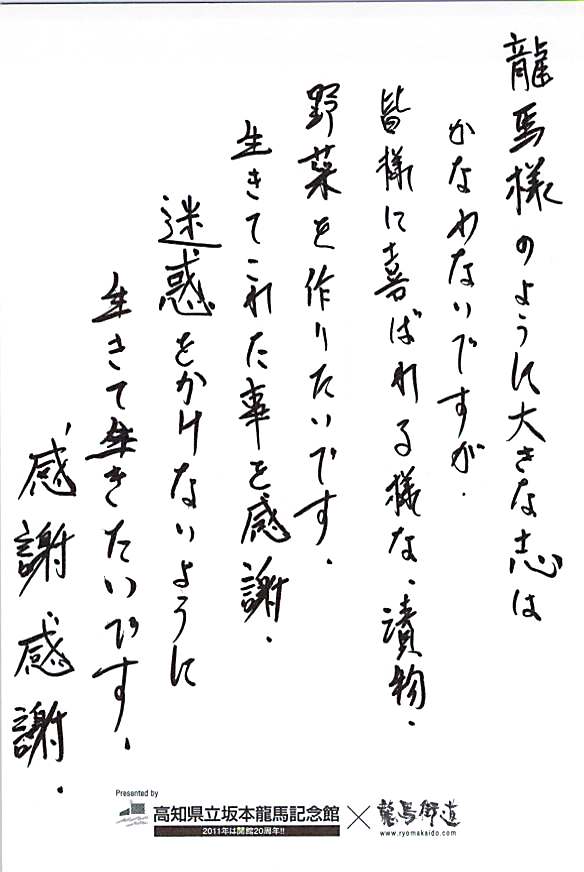 龍馬様のように大きな志は
かなわないですが.
皆様に喜ばれる様な、漬物.
野菜を作りたいです.
生きてこれた事を感謝.
迷惑をかけないように
生きて生きたいです.
感謝感謝.
Presented by
高知県立坂本龍馬記念館
2011年は開館20周年!!
×
龍馬街道
www.ryomakaido.com